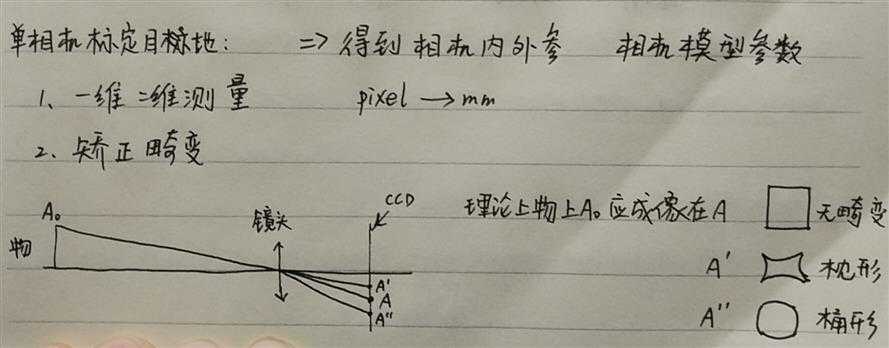 单相机标定目标地: => 得到相机内外参 相机模型参数
1、一维 二维测量 pixel → mm
2、矫正畸变
A₀ 物 镜头 CCD A' A A''
理论上物上A₀应成像在A 无畸变
A' 枕形
A'' 桶形